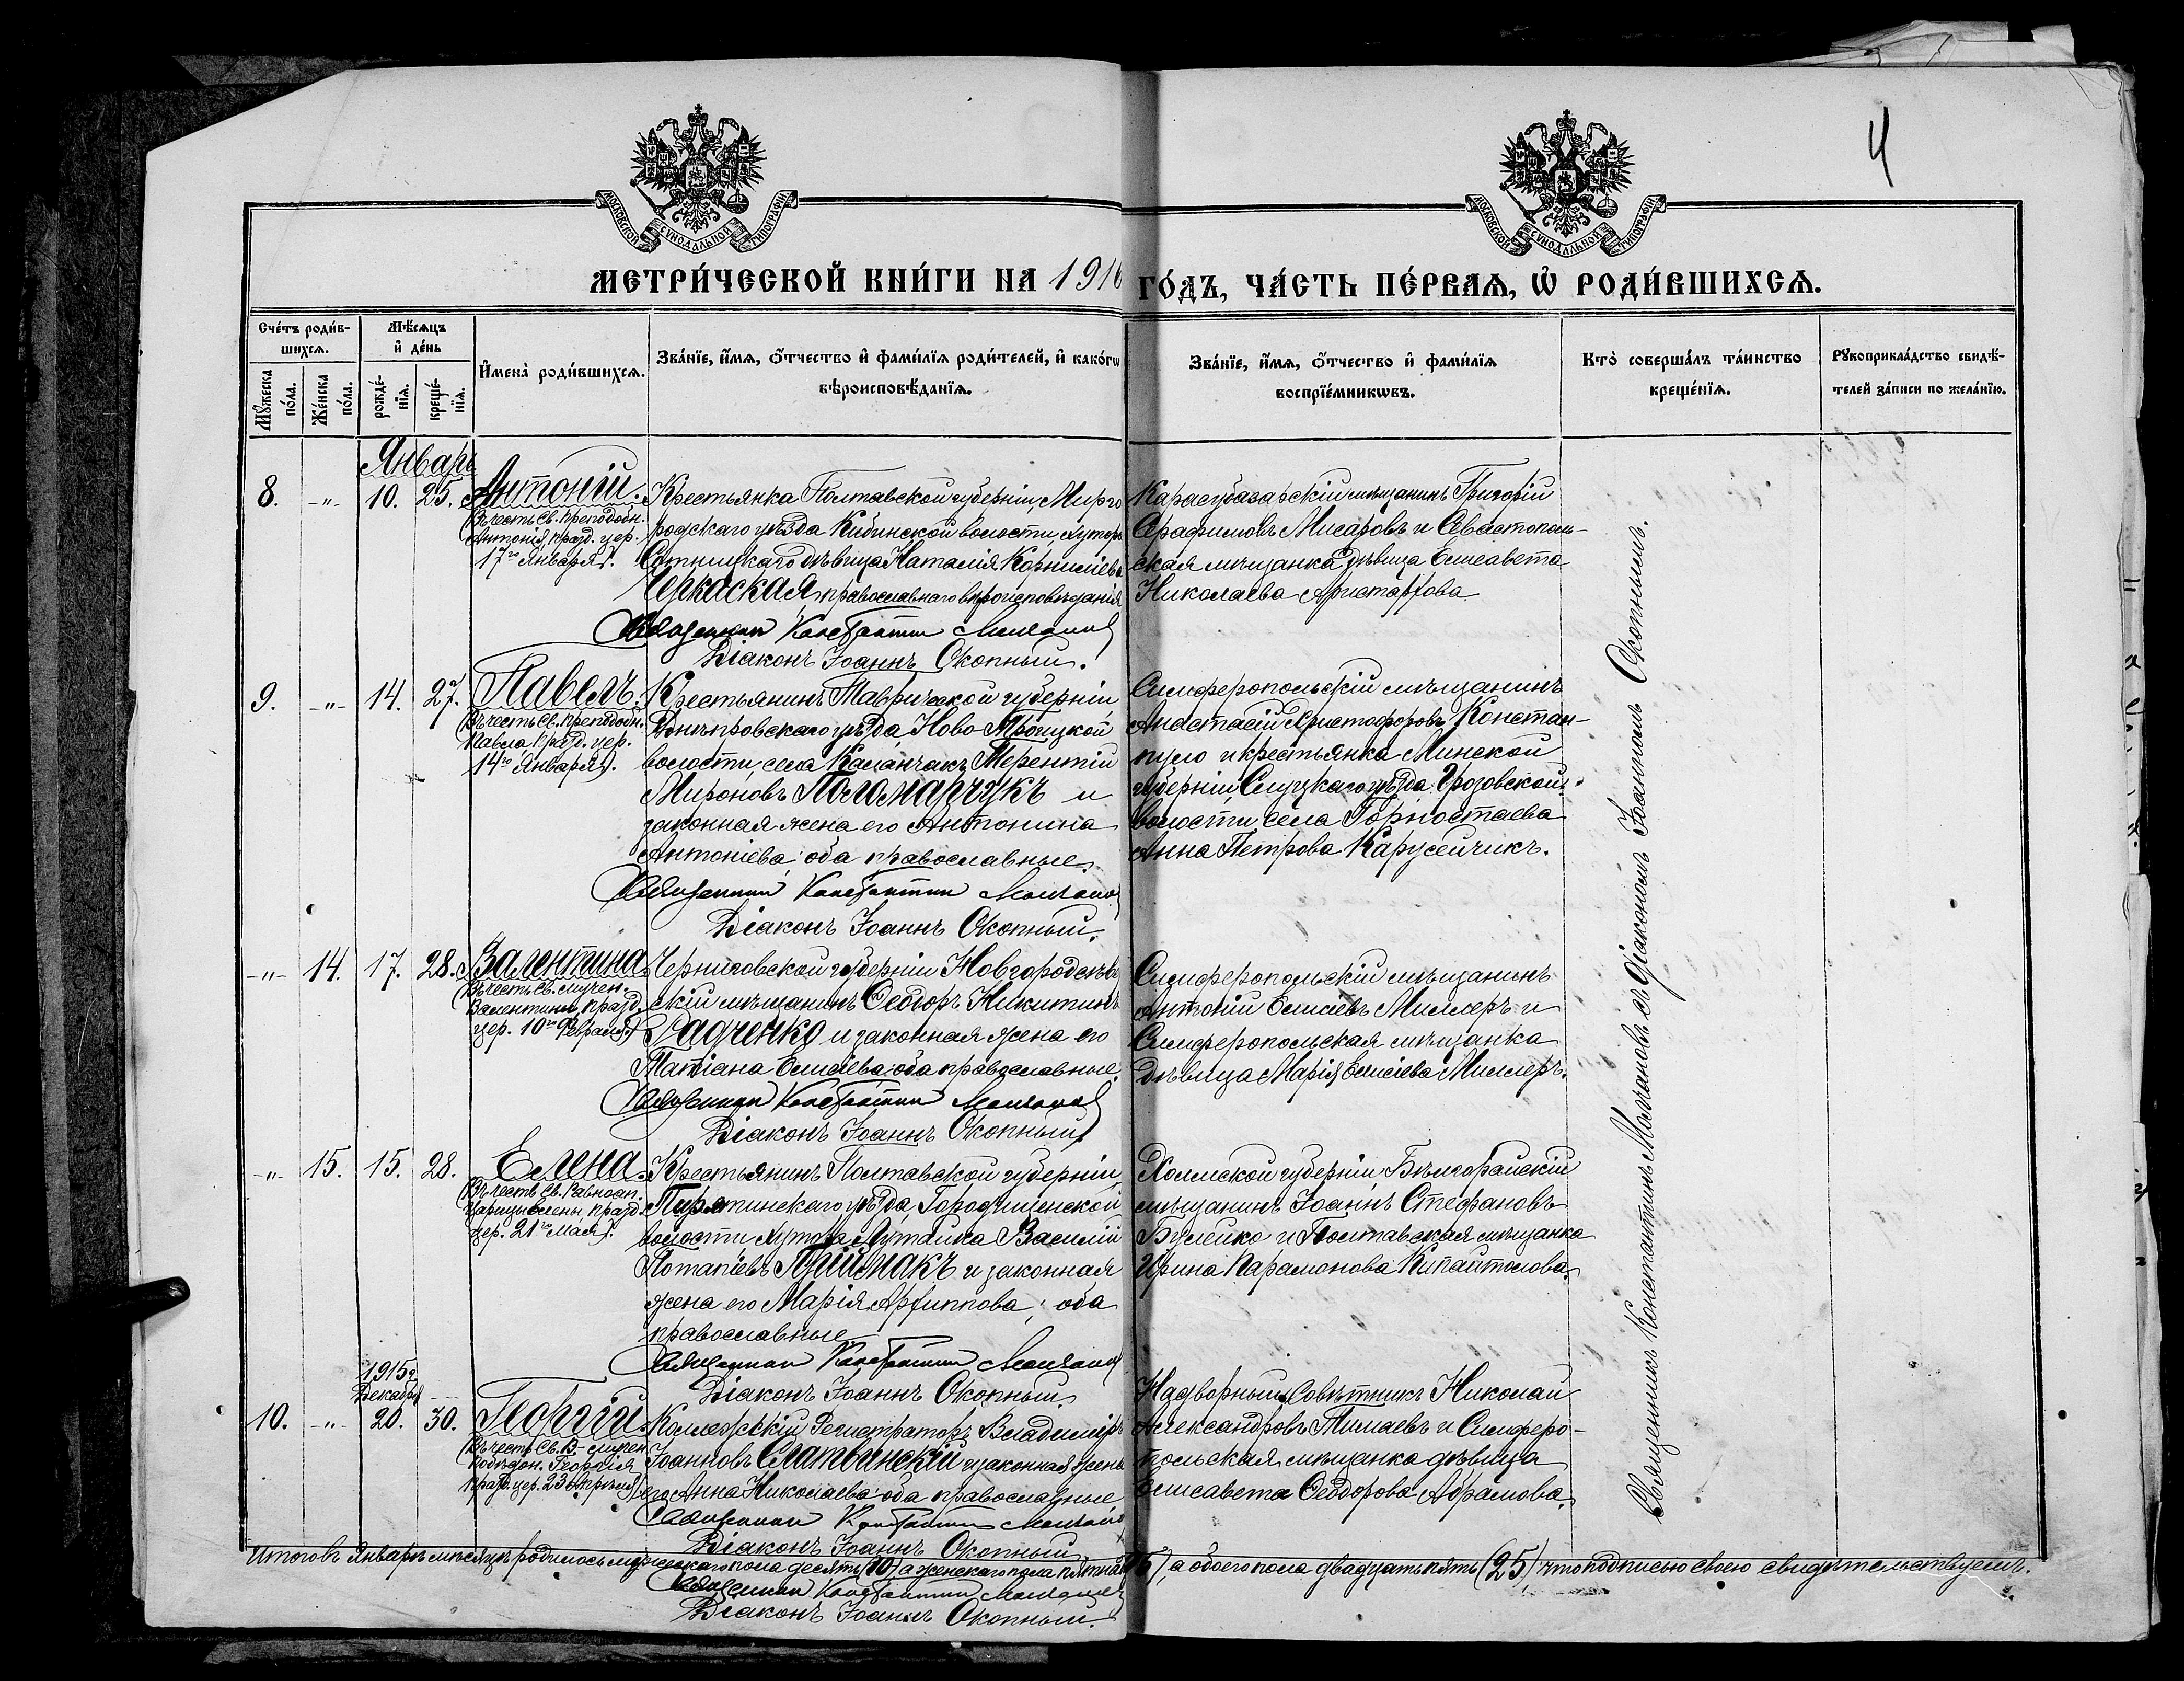 4
МОСКОВСКОЙ СѴНОДАЛЬНОЙ ТИПОГРАФІИ
МОСКОВСКОЙ СѴНОДАЛЬНОЙ ТИПОГРАФІИ
МЕТРИ́ЧЕСКОЙ КНИ́ГИ НА 1916 ГО́ДЪ, ЧА́СТЬ ПЕ́РВАѦ, Ѿ РОДИ́ВШИХСѦ.
Сче́тъ роди́в-
шихсѧ.
Мꙋ́жеска
по́ла.
Же́нска
по́ла.
Мѣ́сѧцъ
и҆ де́нь
рожде́-
нїѧ.
креще́-
нїѧ.
И҆мена̀ роди́вшихсѧ.
Зва́нїе, и҆́мѧ, ѻ҆́тчество и҆ фами́лїѧ роди́телей, и҆ како́гѡ
вѣроисповѣ́данїѧ.
Зва́нїе, и҆́мѧ, ѻ҆́тчество и҆ фами́лїѧ
воспрїе́мникѡвъ.
Кто̀ соверша́лъ та́инство
креще́нїѧ.
Рꙋкоприкла́дство свидѣ́-
телей за́писи по жела́нїю.
Январь
8. -"- 10. 25. Антоній.
(Въ честь Св. преподобн.
Антонія, празд. цер.
17го Января).
Крестьянка Полтавской губерніи, Мирго
родскаго уѣзда Кибинской волости, хутора
дѣвица Наталія Корниліева
Черкаская, православнаго вѣроисповѣданія
Священникъ Константинъ Молчановъ
Діаконъ Іоаннъ Окопный.
Карасубазарскій мѣщанинъ Григорій
Серафимовъ Мисаровъ и Севастополь-
ская мѣщанка дѣвица Елисавета
Николаева Аристархова
9. -"- 14. 27. Павелъ.
(Въ честь Св. преподобн.
Павла празд. цер.
14го Января).
Крестьянинъ Таврической губерніи
Днѣпровскаго уѣзда, Ново Троицкой
волости, села Каланчакъ Терентій
Мироновъ Поломарчукъ и
законная жена его Антонина
Антоніева; оба православные.
Священникъ Константинъ Молчановъ
Діаконъ Іоаннъ Окопный.
Симферопольскій мѣщанинъ
Анастасій Христофоровъ Констан-
пуло и крестьянка Минской
губерніи, Слуцкаго уѣзда Грозовской
волости, села Горностаева
Анна Петрова Карусейчикъ.
-"- 14. 17. 28. Валентина.
(Въ честь Св. мучен.
Валентины, празд.
цер. 10го Февраля)
Черниговской губерніи Новгородсѣвер
скій мѣщанинъ Ѳеодоръ Никитинъ
Радченко и законная жена его
Татіана Елисѣева; оба православные.
Священникъ Константинъ Молчановъ
Діаконъ Іоаннъ Окопный
Симферопольскій мѣщанинъ
Антоній Елисѣевъ Миллеръ и
Симферопольская мѣщанка
дѣвица Марія Елисѣева Миллеръ.
-"- 15. 15. 28. Елена.
(Въ честь Св. Равноап.
Царицы Елены, празд.
цер. 21го Мая).
Крестьянинъ Полтавской губерніи,
Пирятинскаго уѣзда, Городищенской
волости хутора Лутайка Василій
Потапіевъ Пріймакъ и законная
жена его Марія Архиппова; оба
православные
Священникъ Константинъ Молчановъ
Діаконъ Іоаннъ Окопный.
Холмской губерніи, Бѣлгорайскій
мѣщанинъ Іоаннъ Стефановъ
Булейко и Полтавская мѣщанка
Ирина Парамонова
1915г.
Декабря
10. -"- 20. 30. Георгій.
(Въ честь Св. В-мучен.
Побѣдон. Георгія
празд. цер. 23 Апрѣля)
Коллежскій Регистраторъ Владиміръ
Іоанновъ Слатвинскій и законная жена
его Анна Николаева; оба православные.
Священникъ Константинъ Молчановъ
Діаконъ Іоаннъ Окопный
Надворный Совѣтникъ Николай
Александровъ Тишаевъ и Симферо-
польская мѣщанка дѣвица
Елисавета Ѳеодорова Абрамова.
Священникъ Константинъ Молчановъ съ Діакономъ Іоанномъ Окопнымъ.
Итого въ Январѣ мѣсяцѣ родилось мужескаго пола десять (10), а женскаго пола пятнад (15), а обоего пола двадцать пять (25), что подписью своею свидѣтельствуемъ.
Священникъ Константинъ Молчановъ
Діаконъ Іоаннъ Окопный.